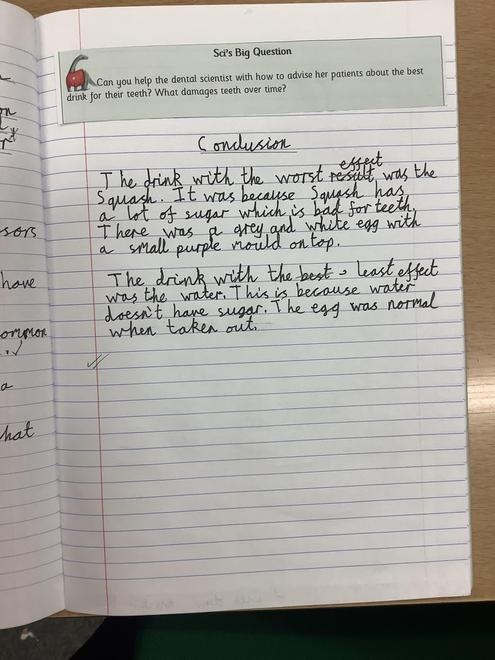 Sci's Big Question
Can you help the dental scientist with how to advise her patients about the best
drink for their teeth? What damages teeth over time?
Conclusion
effect
The drink with the worst result was the
Squash. It was because Squash has
a lot of sugar which is bad for teeth.
There was a grey and white egg with
a small purple mould on top.
The drink with the best → least effect
was the water. This is because water
doesn't have sugar. The egg was normal
when taken out.
sors
have
ommon
a
hat